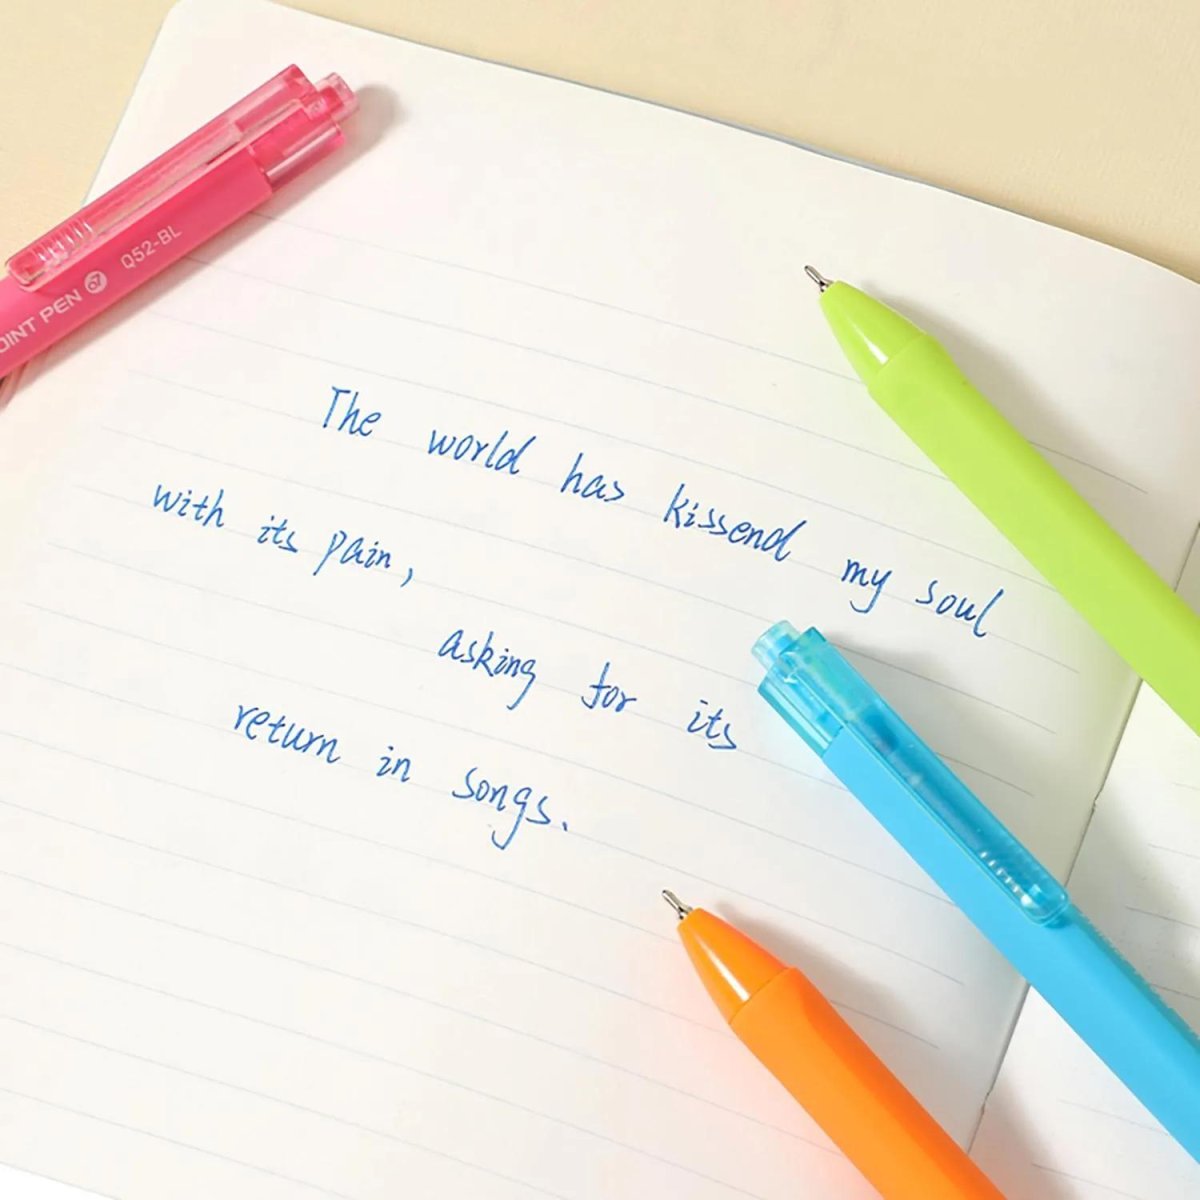 OINT PEN 67 Q52-BL
The world has kissend my soul
with its pain,
asking for its
return in songs.